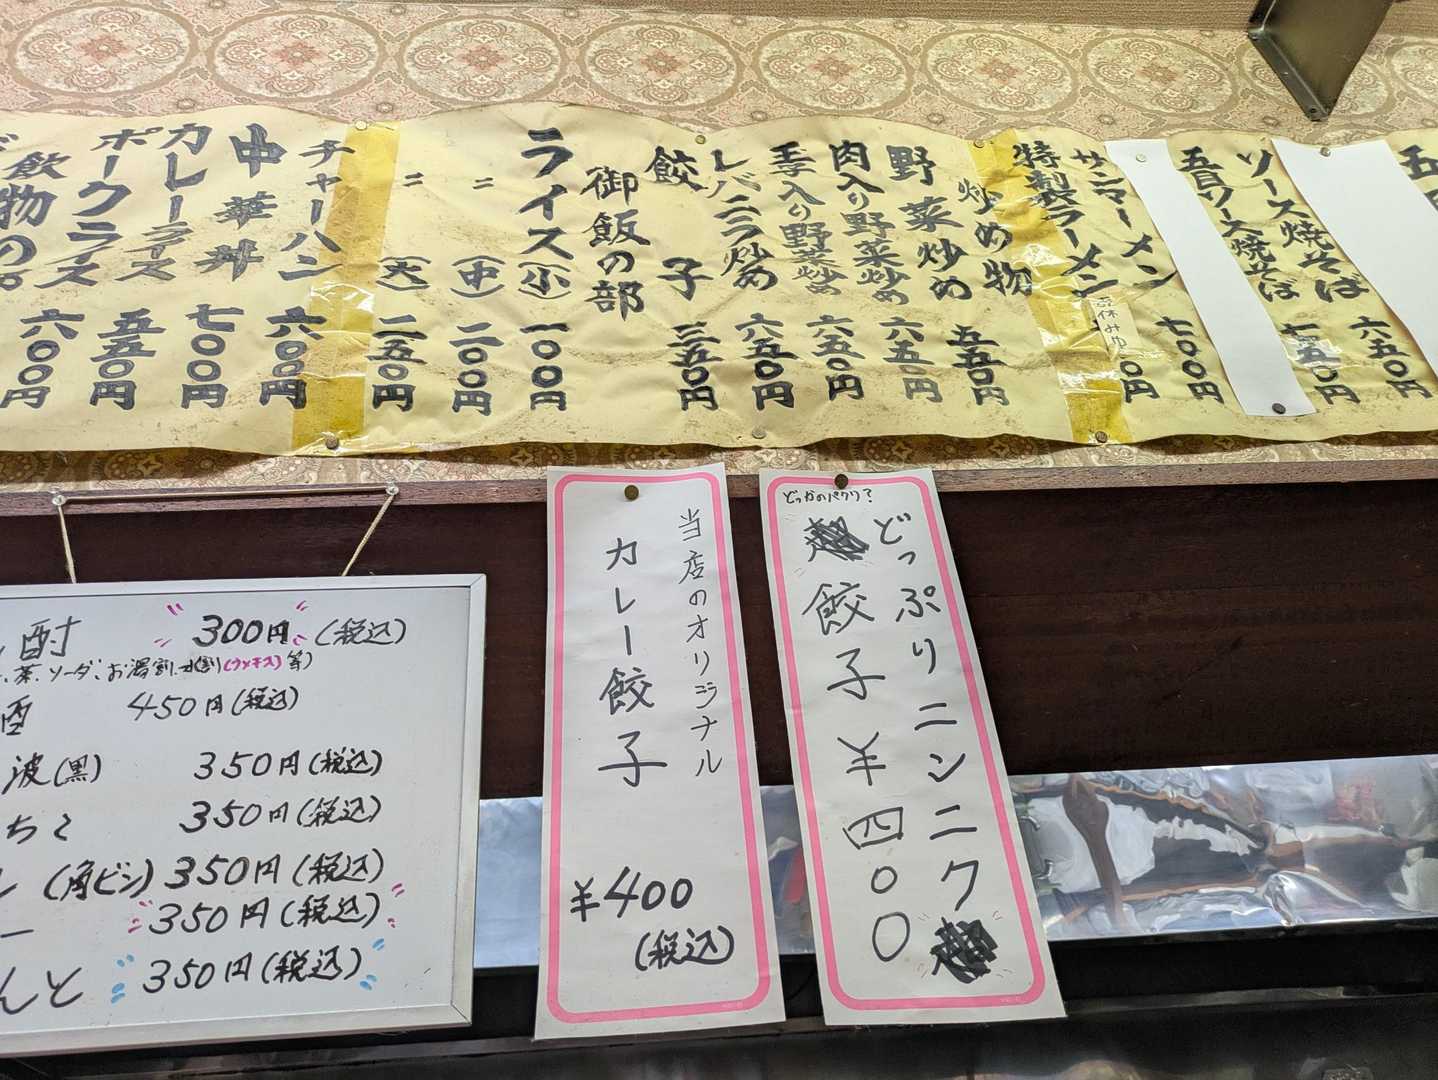 五
ソース焼そば 六五〇円
五目ソース焼そば 七五〇円
サンマーメン 七〇〇円
特製ラーメン 円
休み中
炒め物
野菜炒め 五五〇円
肉入り野菜炒め 六五〇円
玉子入り野菜炒め 六五〇円
レバニラ炒め 六五〇円
餃子 三五〇円
御飯の部
ライス(小) 一〇〇円
〃(中) 二〇〇円
〃(大) 二五〇円
チャーハン 六〇〇円
中華丼 七〇〇円
カレーライス 五五〇円
ポークライス 六〇〇円
飲物の
どっかのパクリ?
どっぷりニンニク
餃子¥四〇〇
当店のオリジナル
カレー餃子
¥400
(税込)
酎 300円(税込)
茶、ソーダ、お湯割、水割(ウメキス)等)
酒 450円(税込)
波(黒) 350円(税込)
ちこ 350円(税込)
(角ビン) 350円(税込)
ー 350円(税込)
んと 350円(税込)